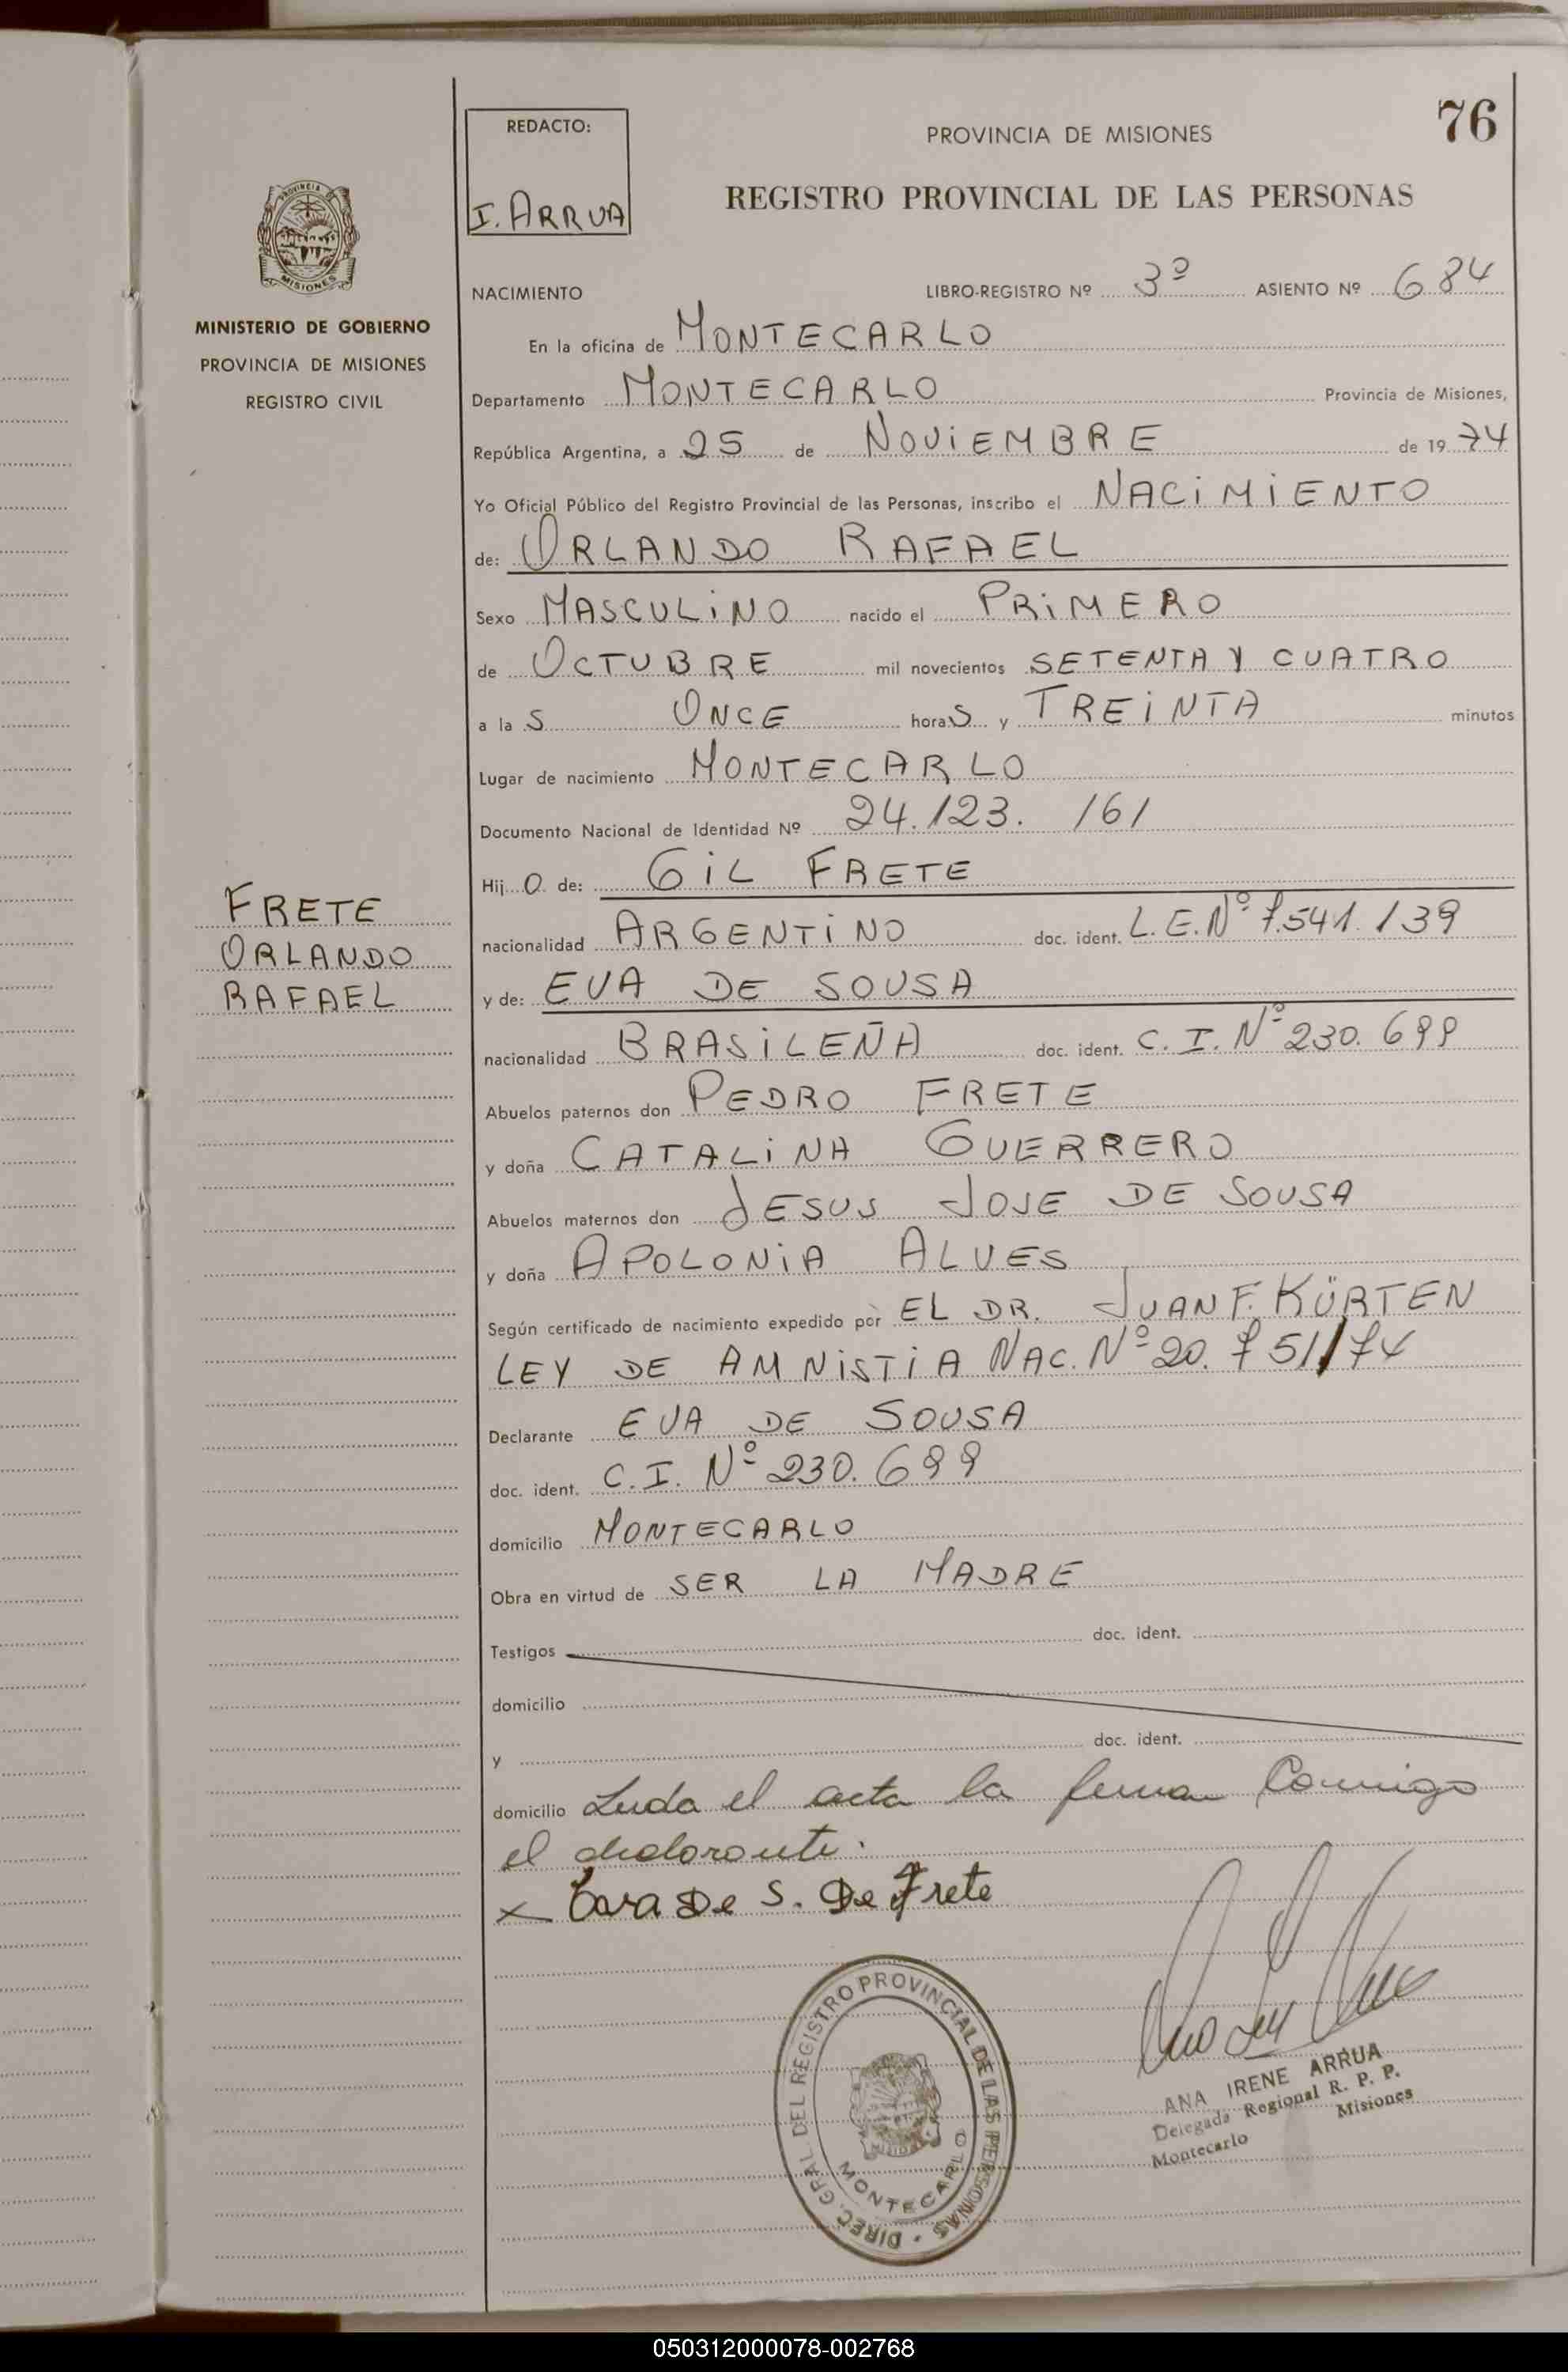 76
REDACTO:
I. ARRUA
PROVINCIA DE MISIONES
REGISTRO PROVINCIAL DE LAS PERSONAS
PROVINCIA
MISIONES
MINISTERIO DE GOBIERNO
PROVINCIA DE MISIONES
REGISTRO CIVIL
NACIMIENTO LIBRO-REGISTRO Nº 3º ASIENTO Nº 684
En la oficina de MONTECARLO
Departamento MONTECARLO Provincia de Misiones,
República Argentina, a 25 de NOVIEMBRE de 1974
Yo Oficial Público del Registro Provincial de las Personas, inscribo el NACIMIENTO
de: ORLANDO RAFAEL
Sexo MASCULINO nacido el PRIMERO
de OCTUBRE mil novecientos SETENTA Y CUATRO
a la S ONCE hora S y TREINTA minutos
Lugar de nacimiento MONTECARLO
Documento Nacional de Identidad Nº 24.123.161
Hij O de: GIL FRETE
FRETE
ORLANDO
RAFAEL
nacionalidad ARGENTINO doc. ident. L.E.Nº 7.541.139
y de: EVA DE SOUSA
nacionalidad BRASILEÑA doc. ident. C.I.Nº 230.699
Abuelos paternos don PEDRO FRETE
y doña CATALINA GUERRERO
Abuelos maternos don JESUS JOSE DE SOUSA
y doña APOLONIA ALVES
Según certificado de nacimiento expedido por EL DR. JUAN F. KÜRTEN
LEY DE AMNISTIA NAC. Nº 20.751/74
Declarante EVA DE SOUSA
doc. ident. C.I. Nº 230.699
domicilio MONTECARLO
Obra en virtud de SER LA MADRE
Testigos doc. ident.
domicilio
y doc. ident.
domicilio Leida el acta la firman Conmigo
el declarante.
x Eva De S. De Frete
DIREC. GRAL. DEL REGISTRO PROVINCIAL DE LAS PERSONAS
MONTECARLO
ANA IRENE ARRUA
Delegada Regional R. P. P.
Montecarlo Misiones
050312000078-002768